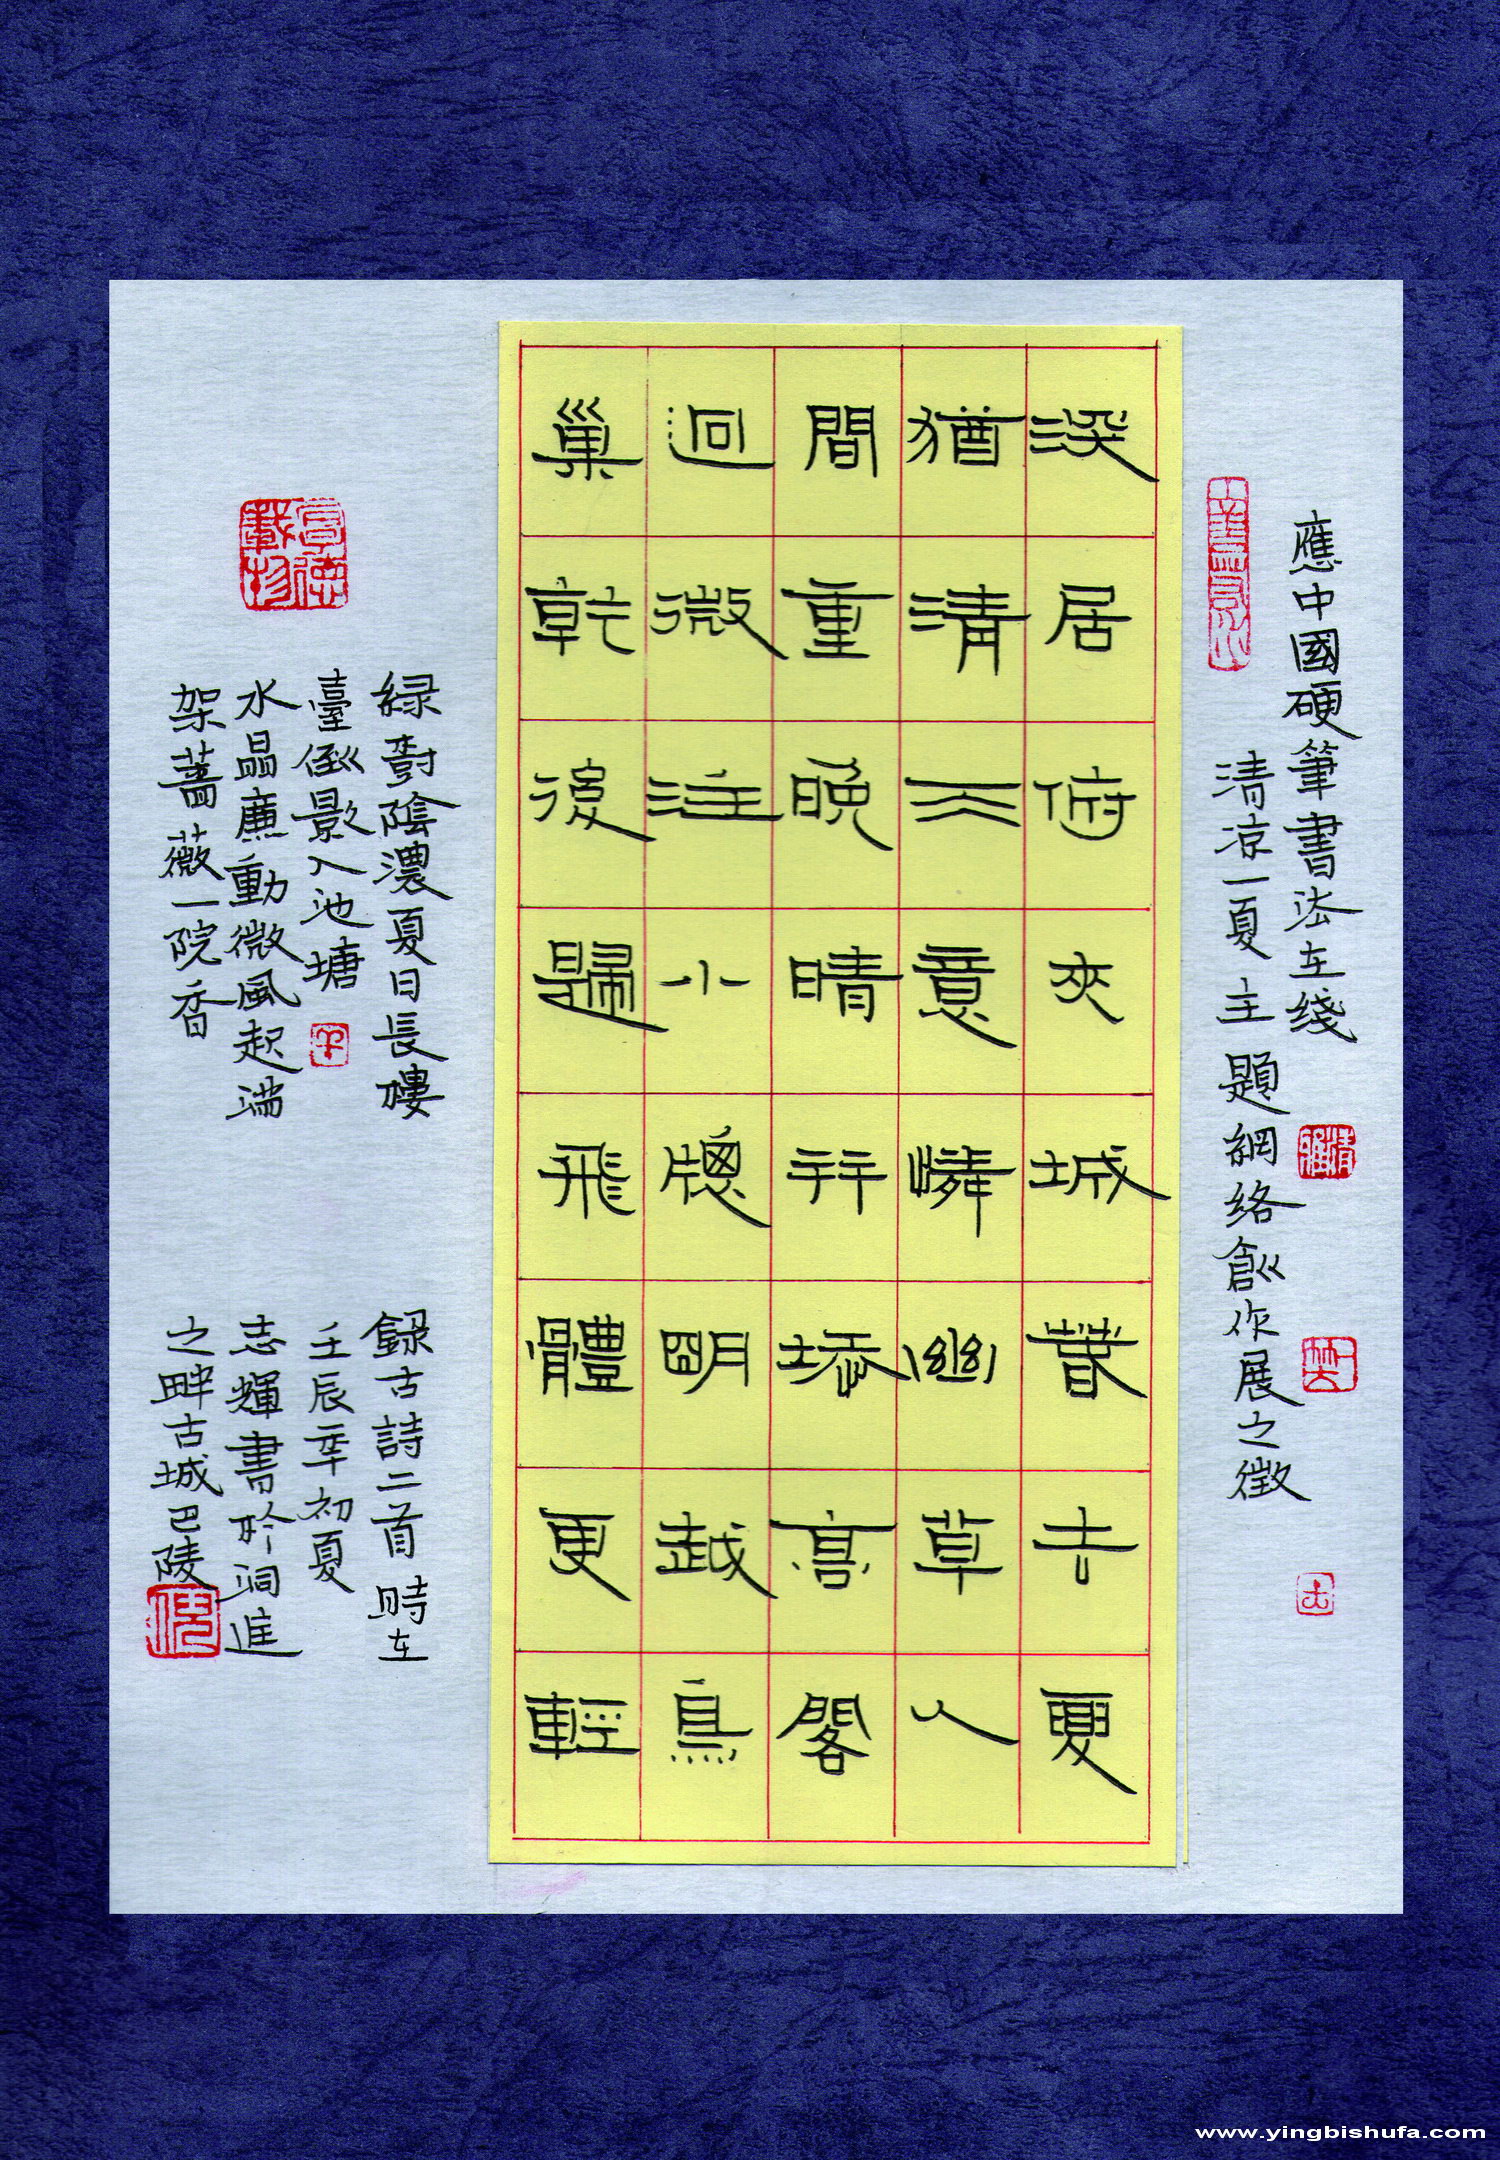 應中國硬筆書法在綫
清凉一夏主題網絡創作展之徵
深居俯夾城春去夏
猶清天意憐幽草人
間重晚晴并添高閣
迴微注小牕明越鳥
巢乾後歸飛體更輕
綠樹陰濃夏日長樓
臺倒影入池塘
水晶廉動微風起滿
架薔薇一院香
錄古詩二首時在
壬辰年初夏
志輝書於洞進
之畔古城巴陵
厚德載物
www.yingbishufa.com